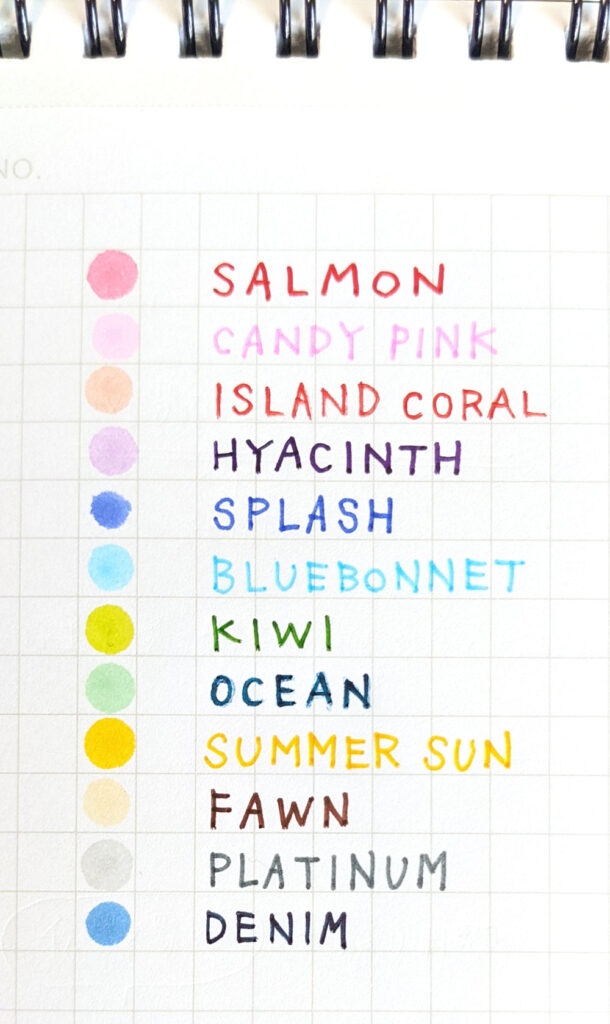 NO.
SALMON
CANDY PINK
ISLAND CORAL
HYACINTH
SPLASH
BLUEBONNET
KIWI
OCEAN
SUMMER SUN
FAWN
PLATINUM
DENIM